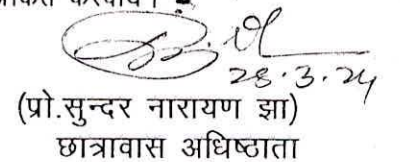 28.3.24
(प्रो.सुन्दर नारायण झा)
छात्रावास अधिष्ठाता